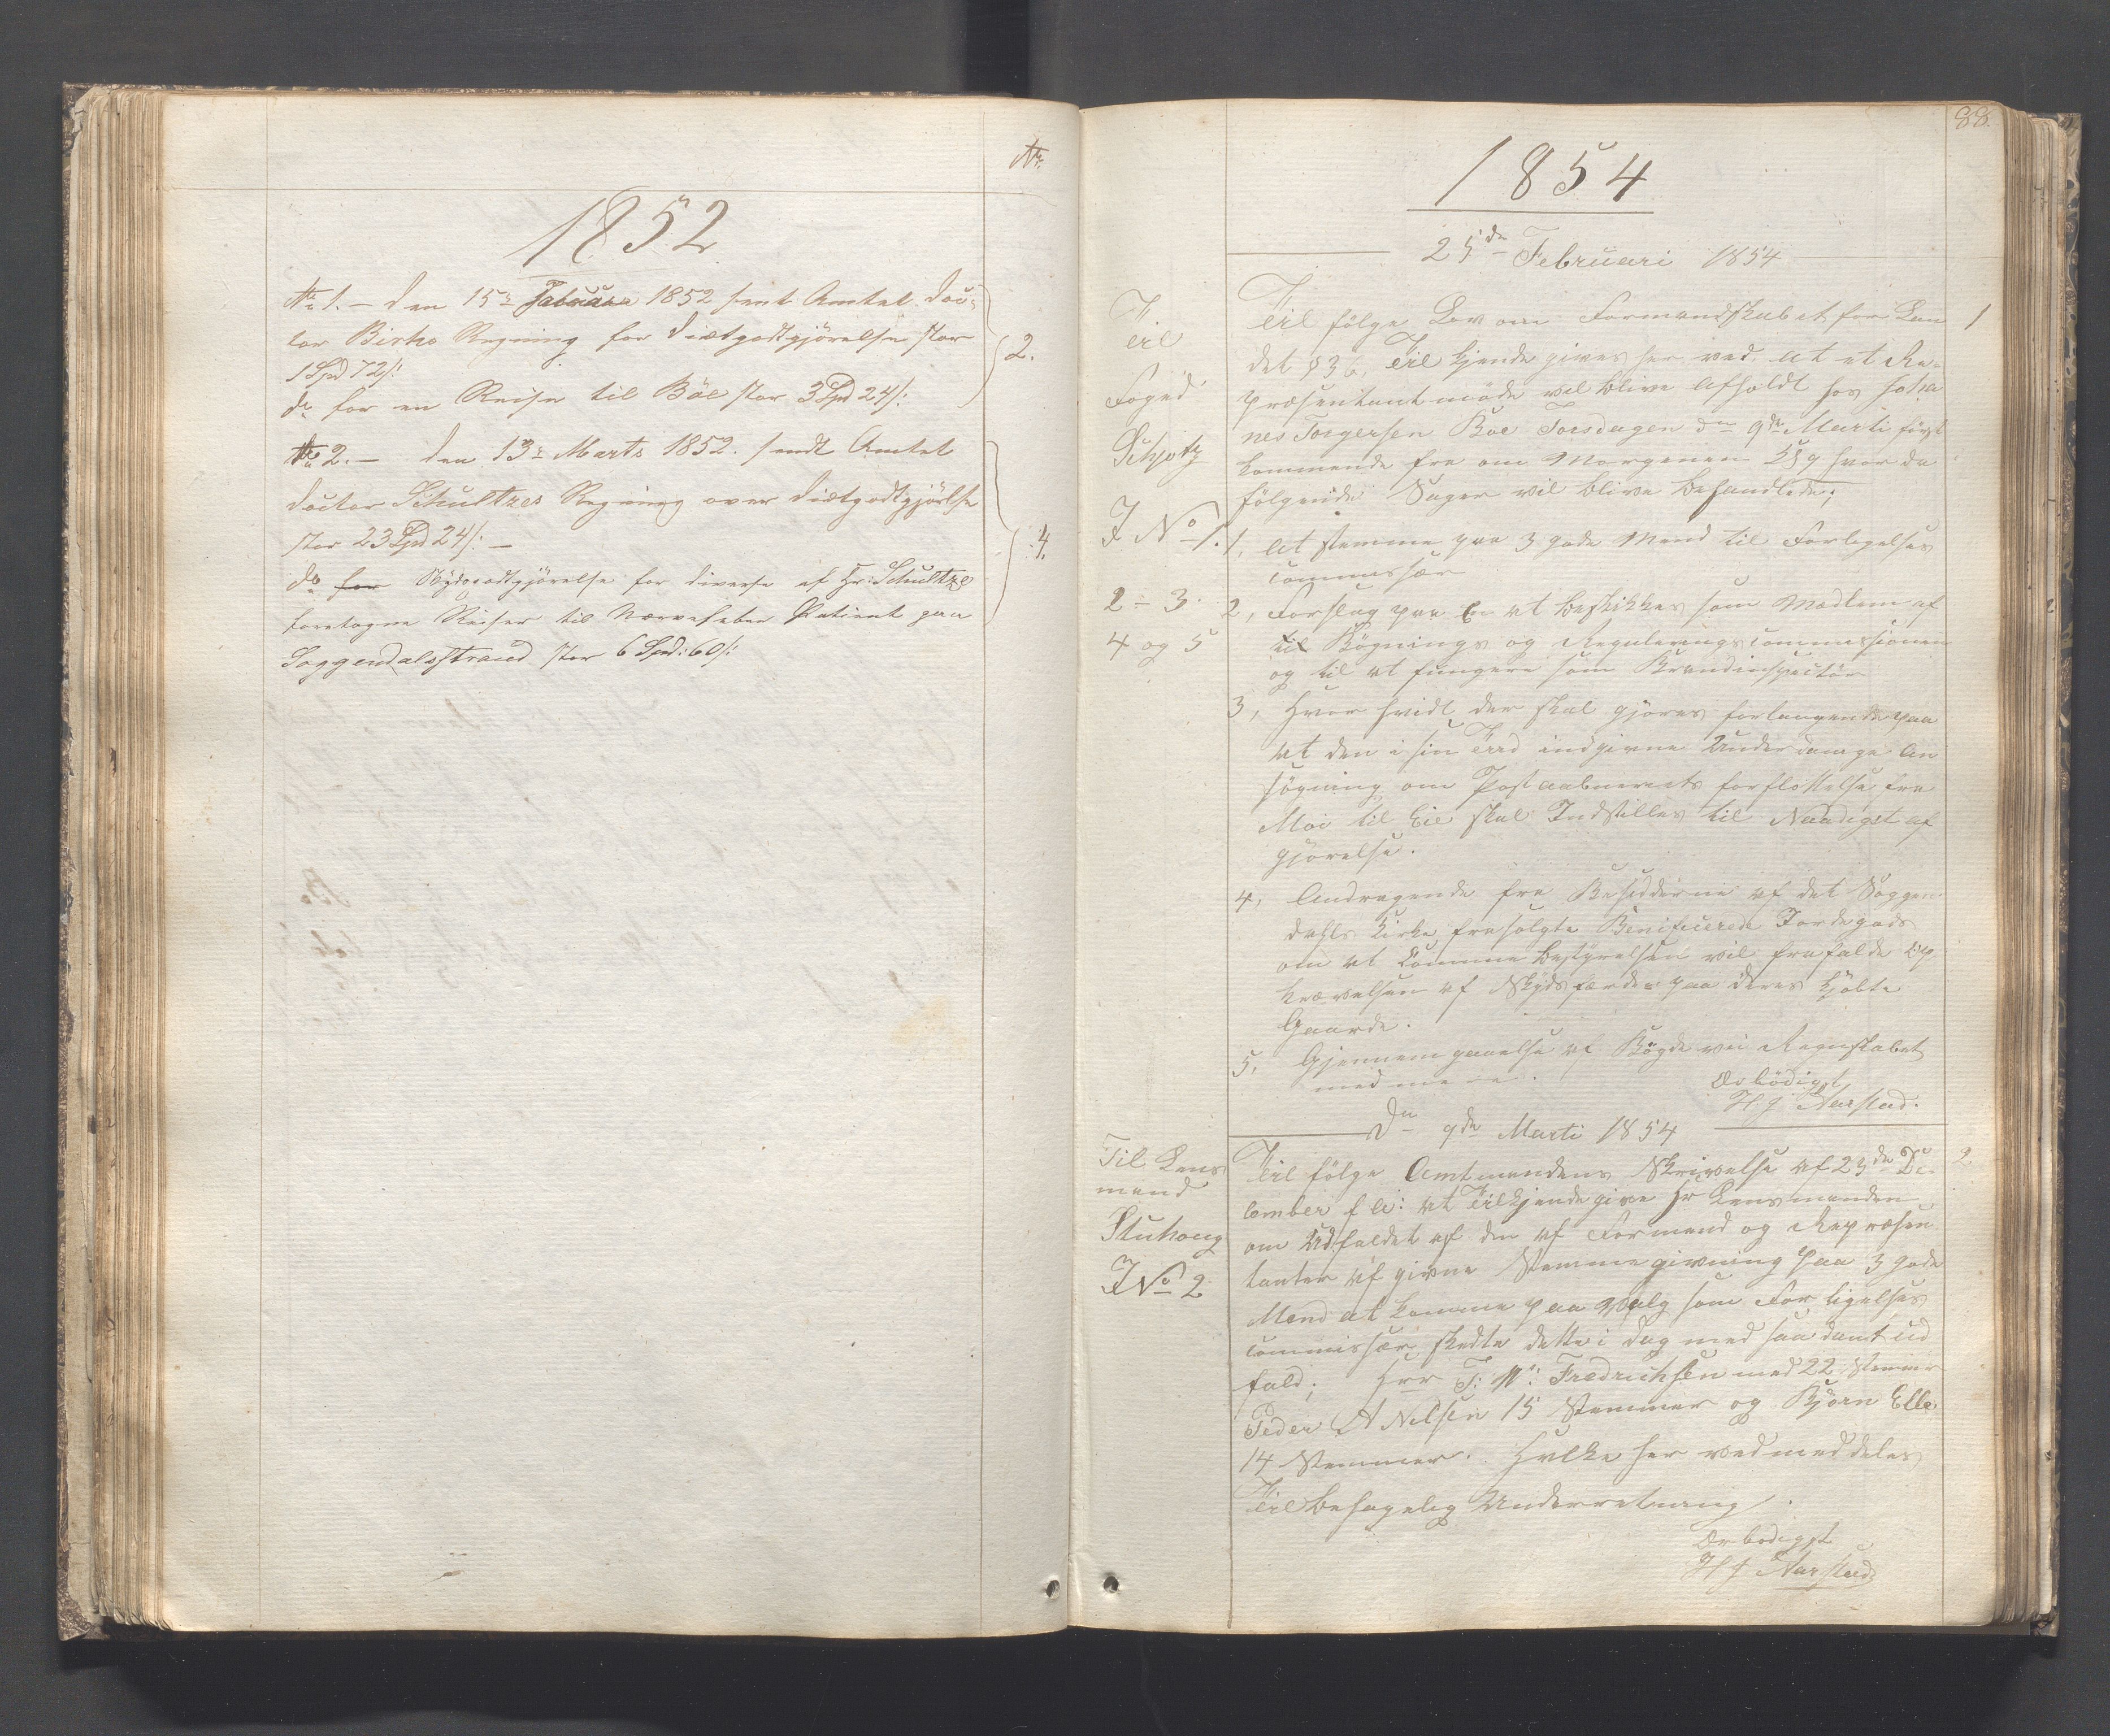 №
1852
№ 1. – den 15de Februar 1852 sent Amtet Doc-
tor Birks Regning for Diætgodtgjörelse stor
1 Spd 72 s:
do for en Reise til Böe stor 3 Spd 24 s:
2.
№ 2. – den 13de Marts 1852. sendt Amtet
Doctor Schultzes Regning over Diætgodtgjörlse
stor 23 Spd 24 s: –
do for Skydsgodtgjörelse for diverse af Hr: Schultze
foretagne Reiser til Nervefeber Patient paa
Soggendalsstrand stor 6 Spd: 60 s:
4.
88.
1854
25de Februari 1854
Til
Foged
Schjøtz
J No 1.
2 – 3.
4 og 5
Til fölge Lov om Formandskabet for Lan
det § 36, Til kjende gives her ved at et Re-
præsentant möde vil blive afholdt hos Joha
nes Torgersen Böe Torsdagen dn 9de Marti först
kommende fra om Morgenen Kl 9 hvor da
fölgende Sager vil blive behandlede;
1
1, At stemme paa 3 gode Mænd til Forligelses
Commissær
2, Forslag paa En at beskikkes som Medlem af
til Bögnings og Regulerings Commissionen
og til at fungere som Brandinspectör
3, Hvor hvidt der skal gjöres forlangende paa
at den i sin Tiid indgivne Underdanige An
sögning om Postaabneriets forflöttelse fra
Moi til Eie skal Indstilles til Naadigst af
gjörelse.
4, Andragende fra Besidderne af det Soggen
dahls Kirke frasolgte Beneficerede Jordegods
om at Commune bestyrelsen vil frafalde Op
krævelsen af Skydsfærde paa deres kjöbte
Gaarde.
5, Gjennemgaaelse af Bögde vei Regnskabet
med mere.
Ærbödigst
H J Aarstad.
Dn 9de Marti 1854
Til Lens
mand
Stuhoug
J No 2
Til fölge Amtmandens Skrivelse af 23de De-
cember f A: at Tilkjende give Hr Lensmanden
om Udfaldet af den af Formænd og Repræsen
tanter af givne Stemmegivning paa 3 gode
Mænd at komme paa Valg som For ligelses
commissær skedte dette i dag med saadant ud
fald; Herr T: W: Fredrichsen med 22 Stemmer
Peder A Nelsen 15 Stemmer og Björn Elle
14 Stemmer. Hvilke her ved meddeles
Til behagelig Underretning.
2
Ærbödigst
H J Aarstad